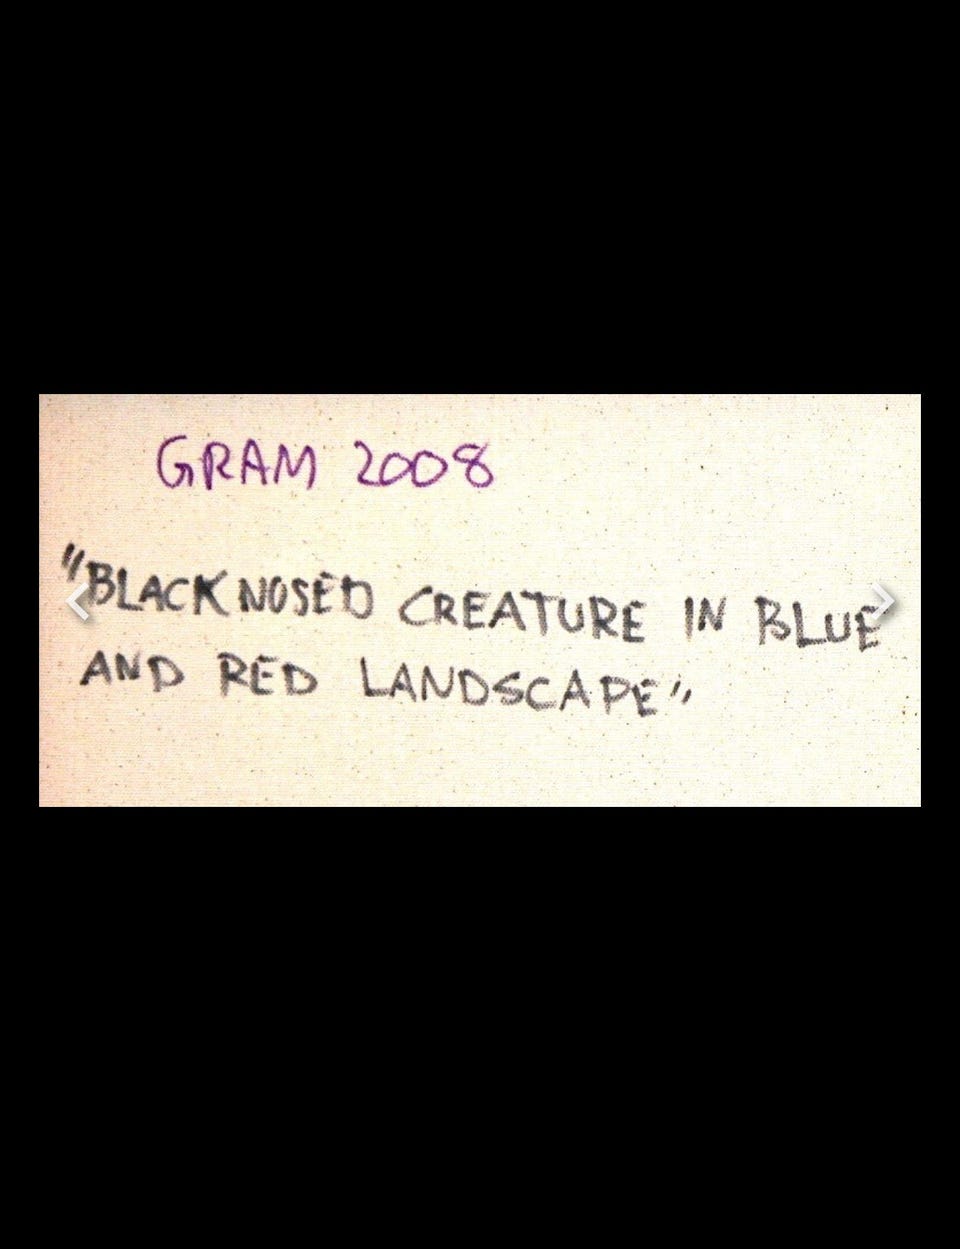 GRAM 2008
"BLACK NOSED CREATURE IN BLUE
AND RED LANDSCAPE"